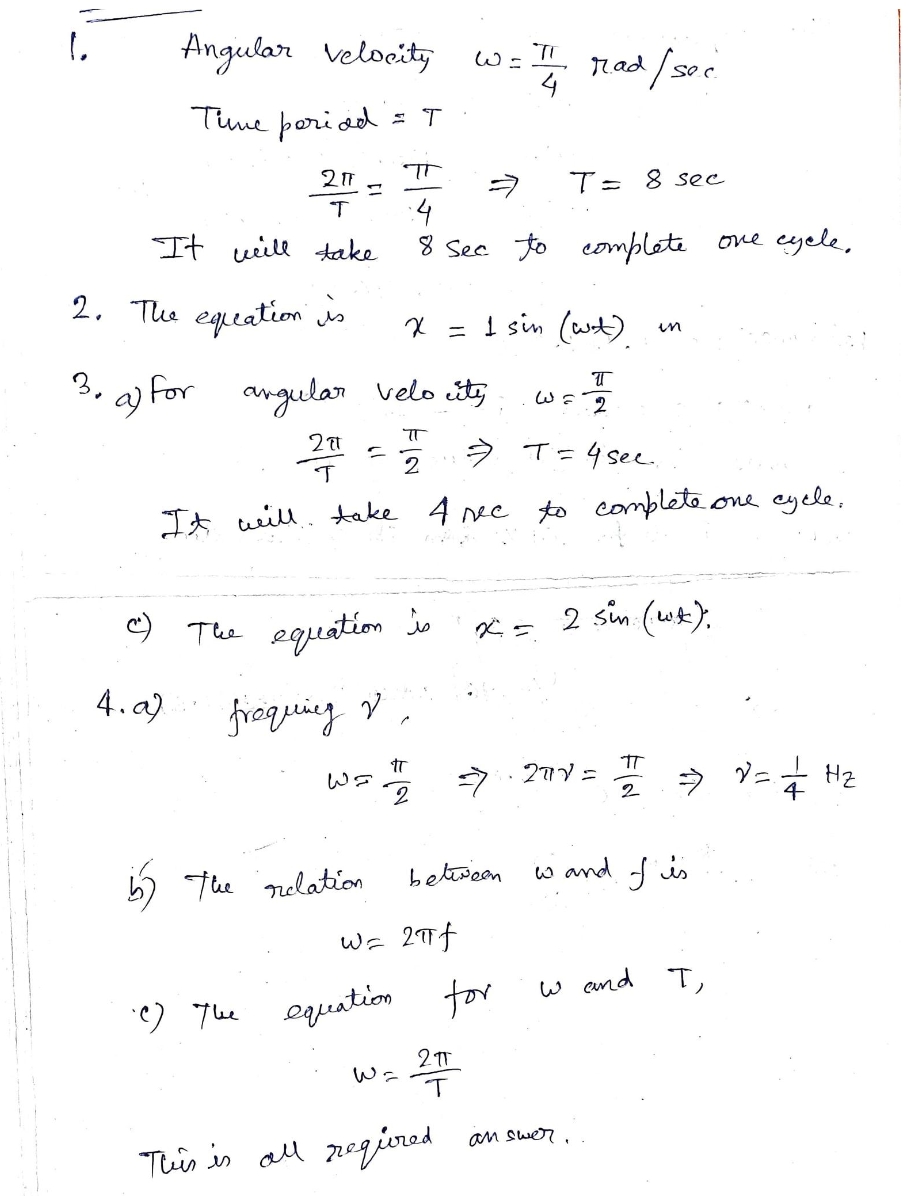 1. Angular velocity ω = π/4 rad/sec
Time period = T
2π/T = π/4 ⇒ T = 8 sec
It will take 8 sec to complete one cycle.
2. The equation is x = 1 sin (ωt) in
3. a) for angular velocity ω = π/2
2π/T = π/2 ⇒ T = 4 sec
It will take 4 sec to complete one cycle.
c) The equation is x = 2 sin (ωt).
4. a) ν.
ω = π/2 ⇒ 2πν = π/2 ⇒ ν = 1/4 Hz
b) The relation between ω and f is
ω = 2πf
c) The equation for ω and T,
ω = 2π/T
This is all required answer.